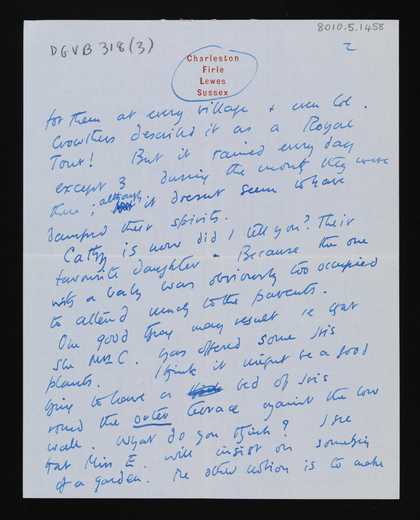 DGVB 318 (3)
8010.5.1458
2
Charleston
Firle
Lewes
Sussex
for them at every village & even Col.
Crowthers described it as a Royal
Tour! But it rained every day
except 3 during the month they were
there; although it doesnt seem to have
damped their spirits.
Cathy is now did I tell you? Their
favourite daughter. Because the one
with a baby was obviously too occupied
to attend much to the parents.
One good thing may result is that
she Mrs C. has offered some Iris
plants. I think it might be a good
thing to have a bed of Iris
round the outer terrace against the low
wall. What do you think? I see
that Miss E. will insist on something
of a garden. The other notion is to make